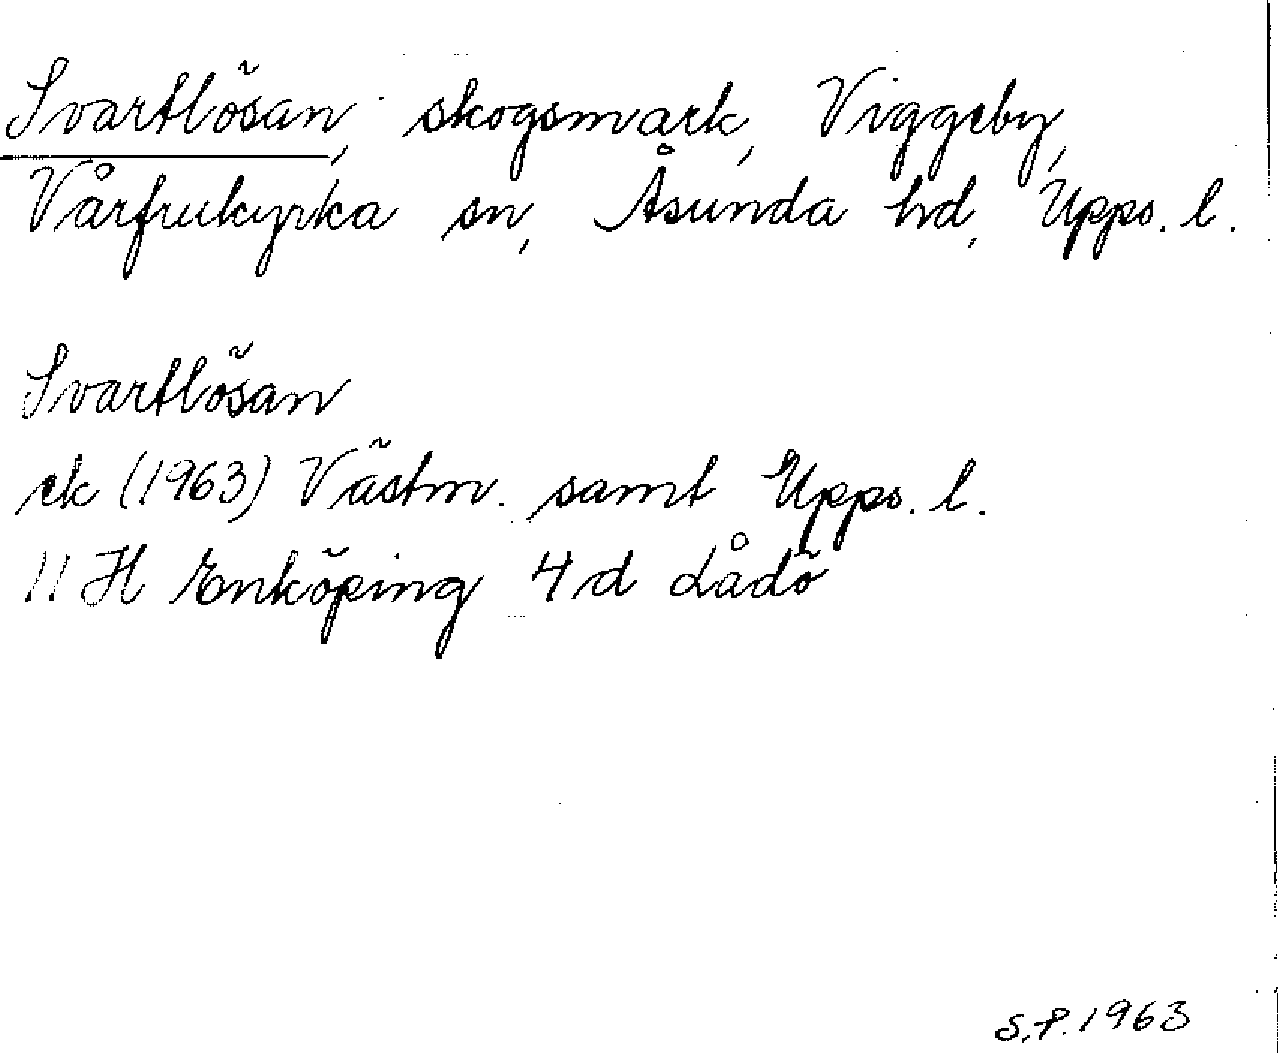 Svartlösan, skogsmark, Viggeby,
Vårfrukyrka sn, Åsunda hd, Upps. l.
Svartlösan
ek (1963) Västm. samt Upps. l.
11 H Enköping 4 d Lådö
S.P. 1963